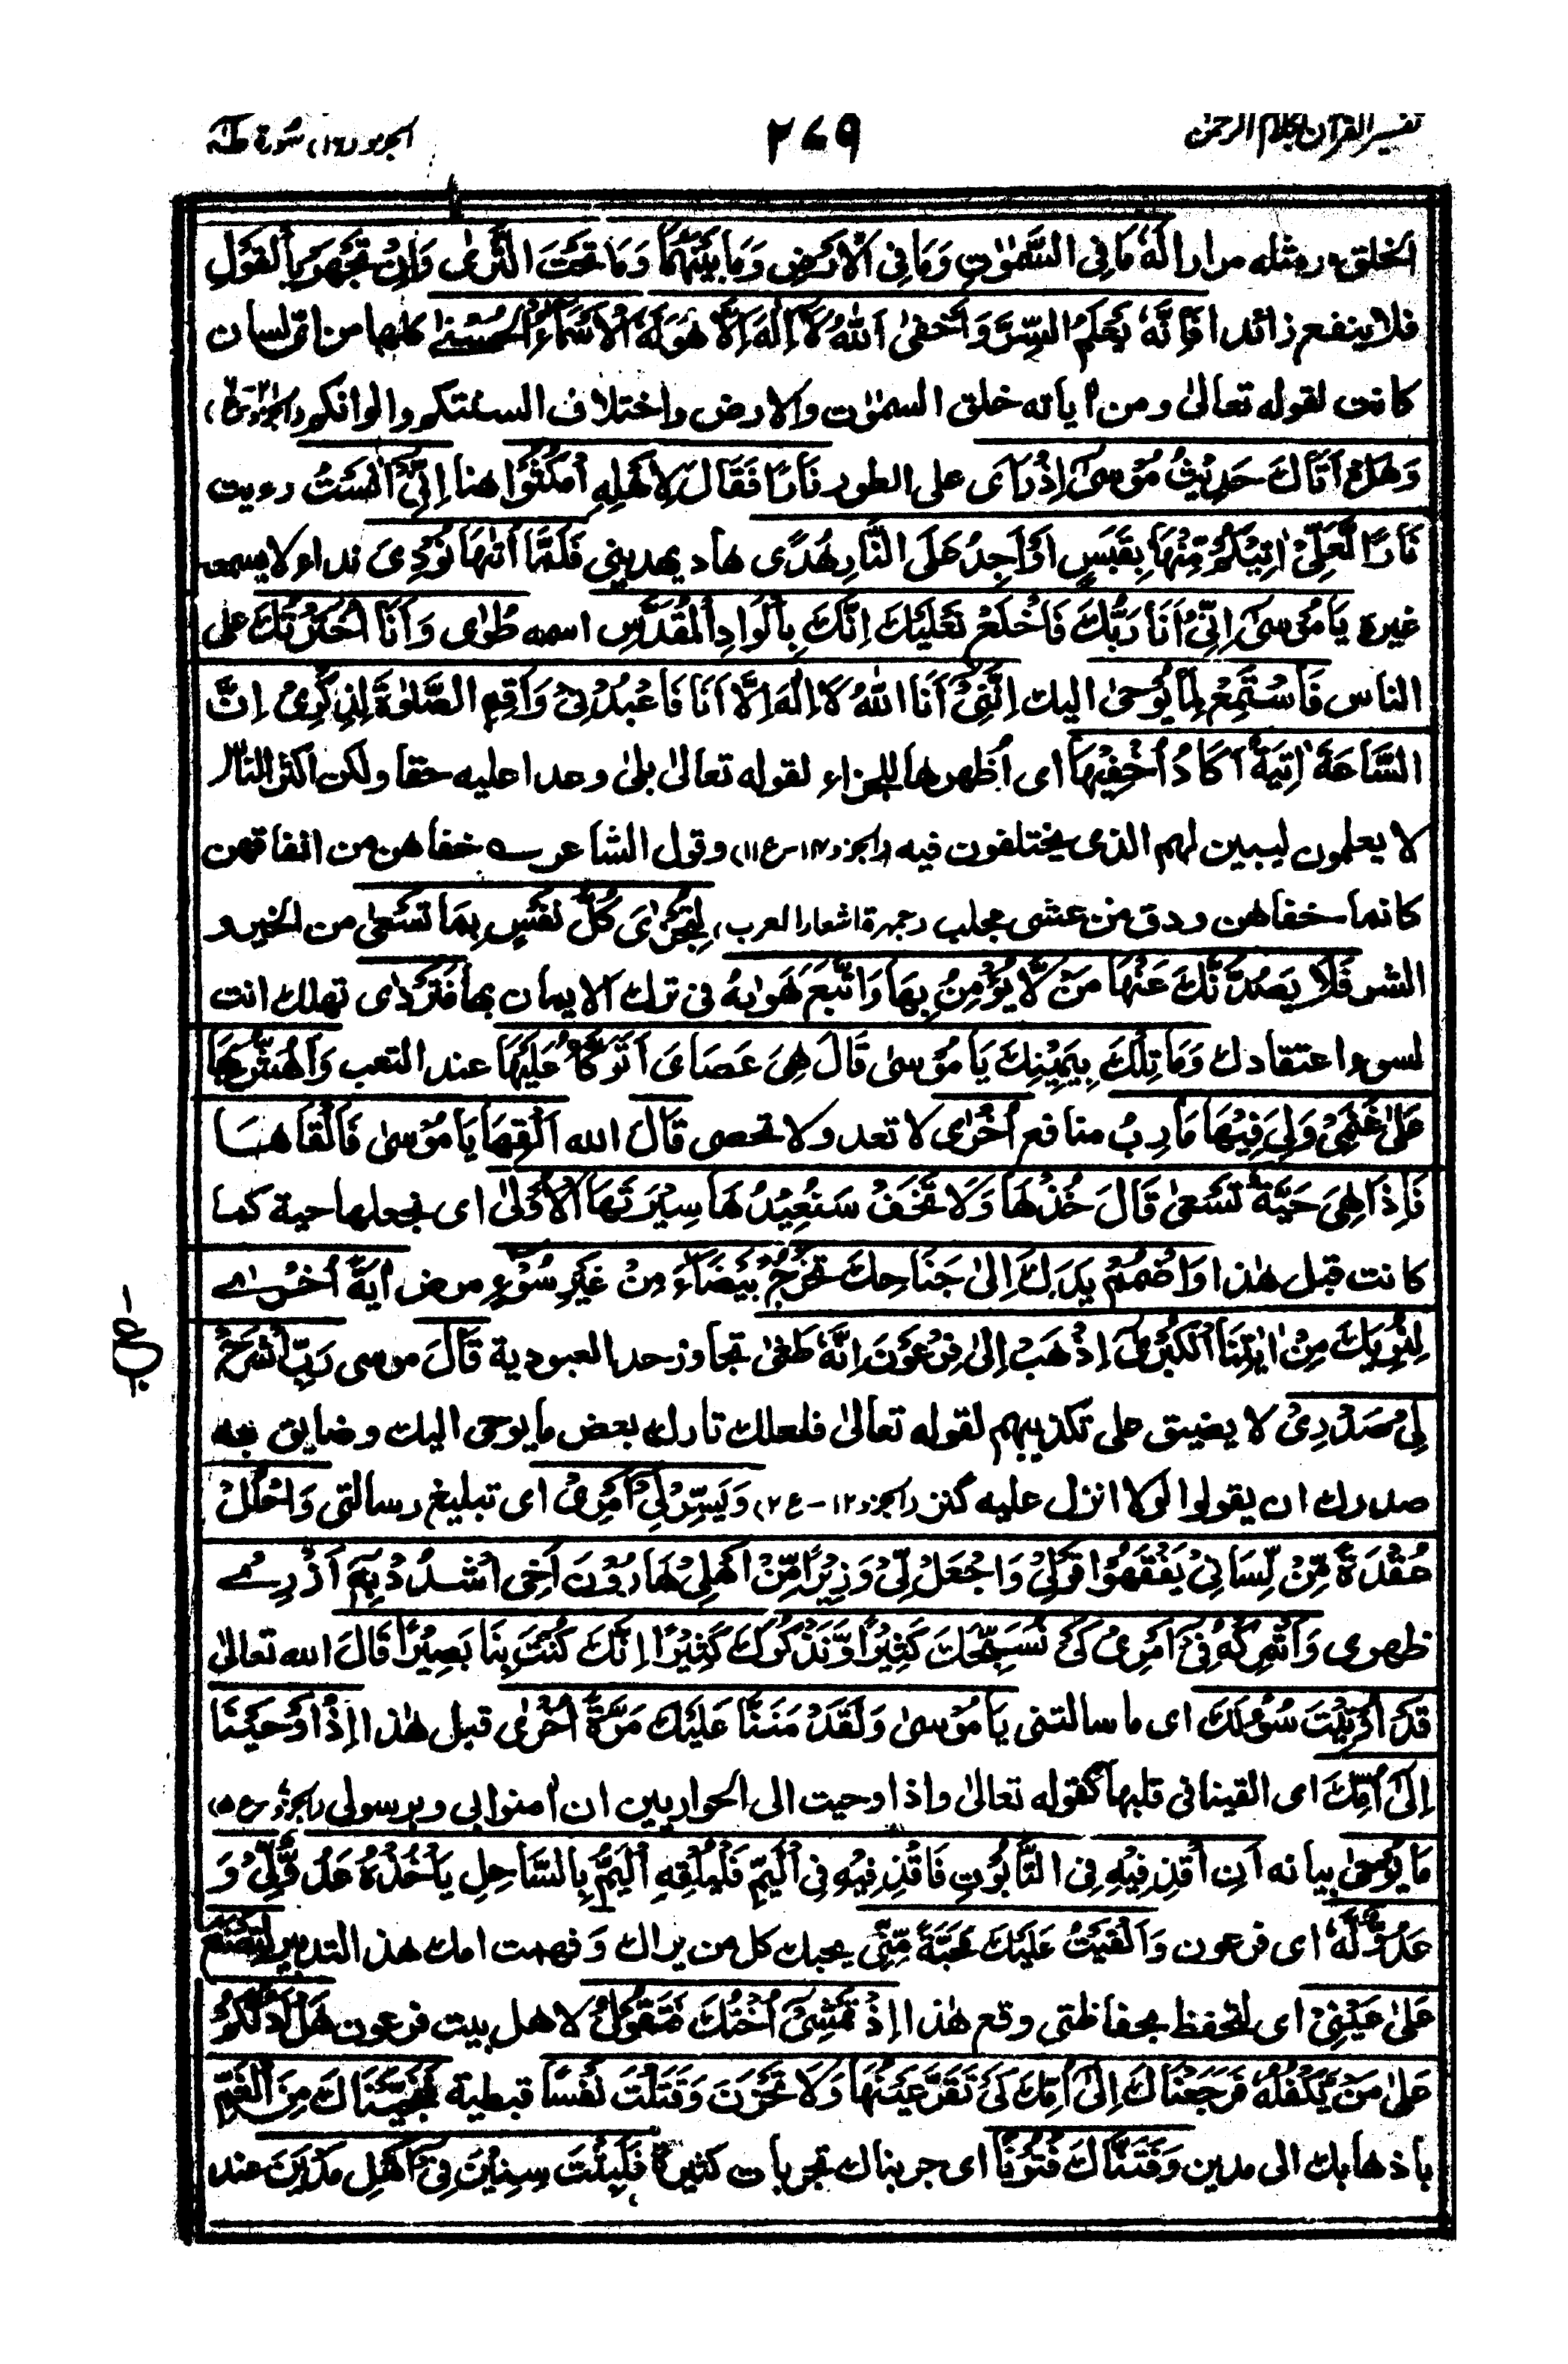 تفسير القرآن بكلام الرحمن
٢٦٩
الجزو (١٦) سُورة طٰهٰ
الخلق ومثله مرارا لَهٗ مَا فِى السَّمٰوٰتِ وَمَا فِى الْاَرْضِ وَمَا بَيْنَهُمَا وَمَا تَحْتَ الثَّرٰى وَاِنْ تَجْهَرْ بِالْقَوْلِ
فلا ينفع زائدا فَاِنَّهٗ يَعْلَمُ السِّرَّ وَاَخْفٰى اَللّٰهُ لَا اِلٰهَ اِلَّا هُوَ لَهُ الْاَسْمَاءُ الْحُسْنٰى كلها من اى لسان
كانت لقوله تعالىٰ ومن اٰياته خلق السمٰوٰت والارض واختلاف السنتكم والوانكم
وَهَلْ اَتَاكَ حَدِيْثُ مُوْسٰى اِذْ رَاٰى على الطور نَارًا فَقَالَ لِاَهْلِهِ امْكُثُوْا هنا اِنِّىْ اٰنَسْتُ رءيت
نَارًا لَّعَلِّىْ اٰتِيْكُمْ مِّنْهَا بِقَبَسٍ اَوْ اَجِدُ عَلَى النَّارِ هُدًى هاد يهدينى فَلَمَّا اَتٰهَا نُوْدِىَ نداء لا يسمعه
غيره يَا مُوْسٰى اِنِّىْ اَنَا رَبُّكَ فَاخْلَعْ نَعْلَيْكَ اِنَّكَ بِالْوَادِ الْمُقَدَّسِ اسمه طُوٰى وَاَنَا اخْتَرْتُكَ على
الناس فَاسْتَمِعْ لِمَا يُوْحٰى اليك اِنَّنِىْ اَنَا اللّٰهُ لَا اِلٰهَ اِلَّا اَنَا فَاعْبُدْنِىْ وَاَقِمِ الصَّلٰوةَ لِذِكْرِىْ اِنَّ
السَّاعَةَ اٰتِيَةٌ اَكَادُ اُخْفِيْهَا اى اُظهرها للجزاء لقوله تعالىٰ بلىٰ وعدا عليه حقا ولكن اكثر الناس
لا يعلمون ليبين لهم الذى يختلفون فيه (الجزو ١٤-ع ١١) وقول الشاعر ؎ خفاهن من انفاقهن
كانما خفاهن ودق من عشى مجلب (جمهرة اشعار العرب) لِتُجْزٰى كُلُّ نَفْسٍ بِمَا تَسْعٰى من الخير و
الشر فَلَا يَصُدَّنَّكَ عَنْهَا مَنْ لَّا يُؤْمِنُ بِهَا وَاتَّبَعَ هَوٰىهُ فى ترك الايمان بها فَتَرْدٰى تهلك انت
لسوء اعتقادك وَمَا تِلْكَ بِيَمِيْنِكَ يَا مُوْسٰى قَالَ هِىَ عَصَاىَ اَتَوَكَّؤُ عَلَيْهَا عند التعب وَاَهُشُّ بِهَا
عَلٰى غَنَمِىْ وَلِىَ فِيْهَا مَاٰرِبُ منافع اُخْرٰى لا تعد ولا تحصى قَالَ الله اَلْقِهَا يَا مُوْسٰى فَاَلْقَاهَا
فَاِذَا هِىَ حَيَّةٌ تَسْعٰى قَالَ خُذْهَا وَلَا تَخَفْ سَنُعِيْدُهَا سِيْرَتَهَا الْاُوْلٰى اى نجعلها حية كما
كانت قبل هٰذا وَاضْمُمْ يَدَكَ اِلٰى جَنَاحِكَ تَخْرُجْ بَيْضَاءَ مِنْ غَيْرِ سُوْءٍ مرض اٰيَةً اُخْرٰى
لِنُرِيَكَ مِنْ اٰيٰتِنَا الْكُبْرٰى اِذْهَبْ اِلٰى فِرْعَوْنَ اِنَّهٗ طَغٰى تجاوز حد العبودية قَالَ موسى رَبِّ اشْرَحْ
لِىْ صَدْرِىْ لا يضيق على تكذيبهم لقوله تعالىٰ فلعلك تارك بعض ما يوحى اليك وضايق به
صدرك ان يقولوا لولا انزل عليه كنز (الجزو ١٢-ع ٢) وَيَسِّرْ لِىْ اَمْرِىْ اى تبليغ رسالتى وَاحْلُلْ
عُقْدَةً مِّنْ لِّسَانِىْ يَفْقَهُوْا قَوْلِىْ وَاجْعَلْ لِّىْ وَزِيْرًا مِّنْ اَهْلِىْ هَارُوْنَ اَخِى اشْدُدْ بِهٖ اَزْرِىْ
ظهرى وَاَشْرِكْهُ فِىْ اَمْرِىْ كَىْ نُسَبِّحَكَ كَثِيْرًا وَّنَذْكُرَكَ كَثِيْرًا اِنَّكَ كُنْتَ بِنَا بَصِيْرًا قَالَ الله تعالىٰ
قَدْ اُوْتِيْتَ سُؤْلَكَ اى ما سالتنى يَا مُوْسٰى وَلَقَدْ مَنَنَّا عَلَيْكَ مَرَّةً اُخْرٰى قبل هٰذا اِذْ اَوْحَيْنَا
اِلٰى اُمِّكَ اى القينا فى قلبها كقوله تعالىٰ واذ اوحيت الى الحواريين ان اٰمنوا بى وبرسولى
مَا يُوْحٰى بيانه اَنِ اقْذِفِيْهِ فِى التَّابُوْتِ فَاقْذِفِيْهِ فِى الْيَمِّ فَلْيُلْقِهِ الْيَمُّ بِالسَّاحِلِ يَاْخُذْهُ عَدُوٌّ لِّىْ وَ
عَدُوٌّ لَّهٗ اى فرعون وَاَلْقَيْتُ عَلَيْكَ مَحَبَّةً مِّنِّىْ يحبك كل من يراك وَفهمت امك هذ التدبير لِتُصْنَعَ
عَلٰى عَيْنِىْ اى لتحفظ بحفاظتى وقع هٰذا اِذْ تَمْشِىْ اُخْتُكَ فَتَقُوْلُ لاهل بيت فرعون هَلْ اَدُلُّكُمْ
عَلٰى مَنْ يَّكْفُلُهٗ فَرَجَعْنَاكَ اِلٰى اُمِّكَ كَىْ تَقَرَّ عَيْنُهَا وَلَا تَحْزَنَ وَقَتَلْتَ نَفْسًا قبطية فَنَجَّيْنَاكَ مِنَ الْغَمِّ
باذهابك الى مدين وَفَتَنَّاكَ فُتُوْنًا اى جربناك تجربات كثيرة فَلَبِثْتَ سِنِيْنَ فِىْ اَهْلِ مَدْيَنَ عند